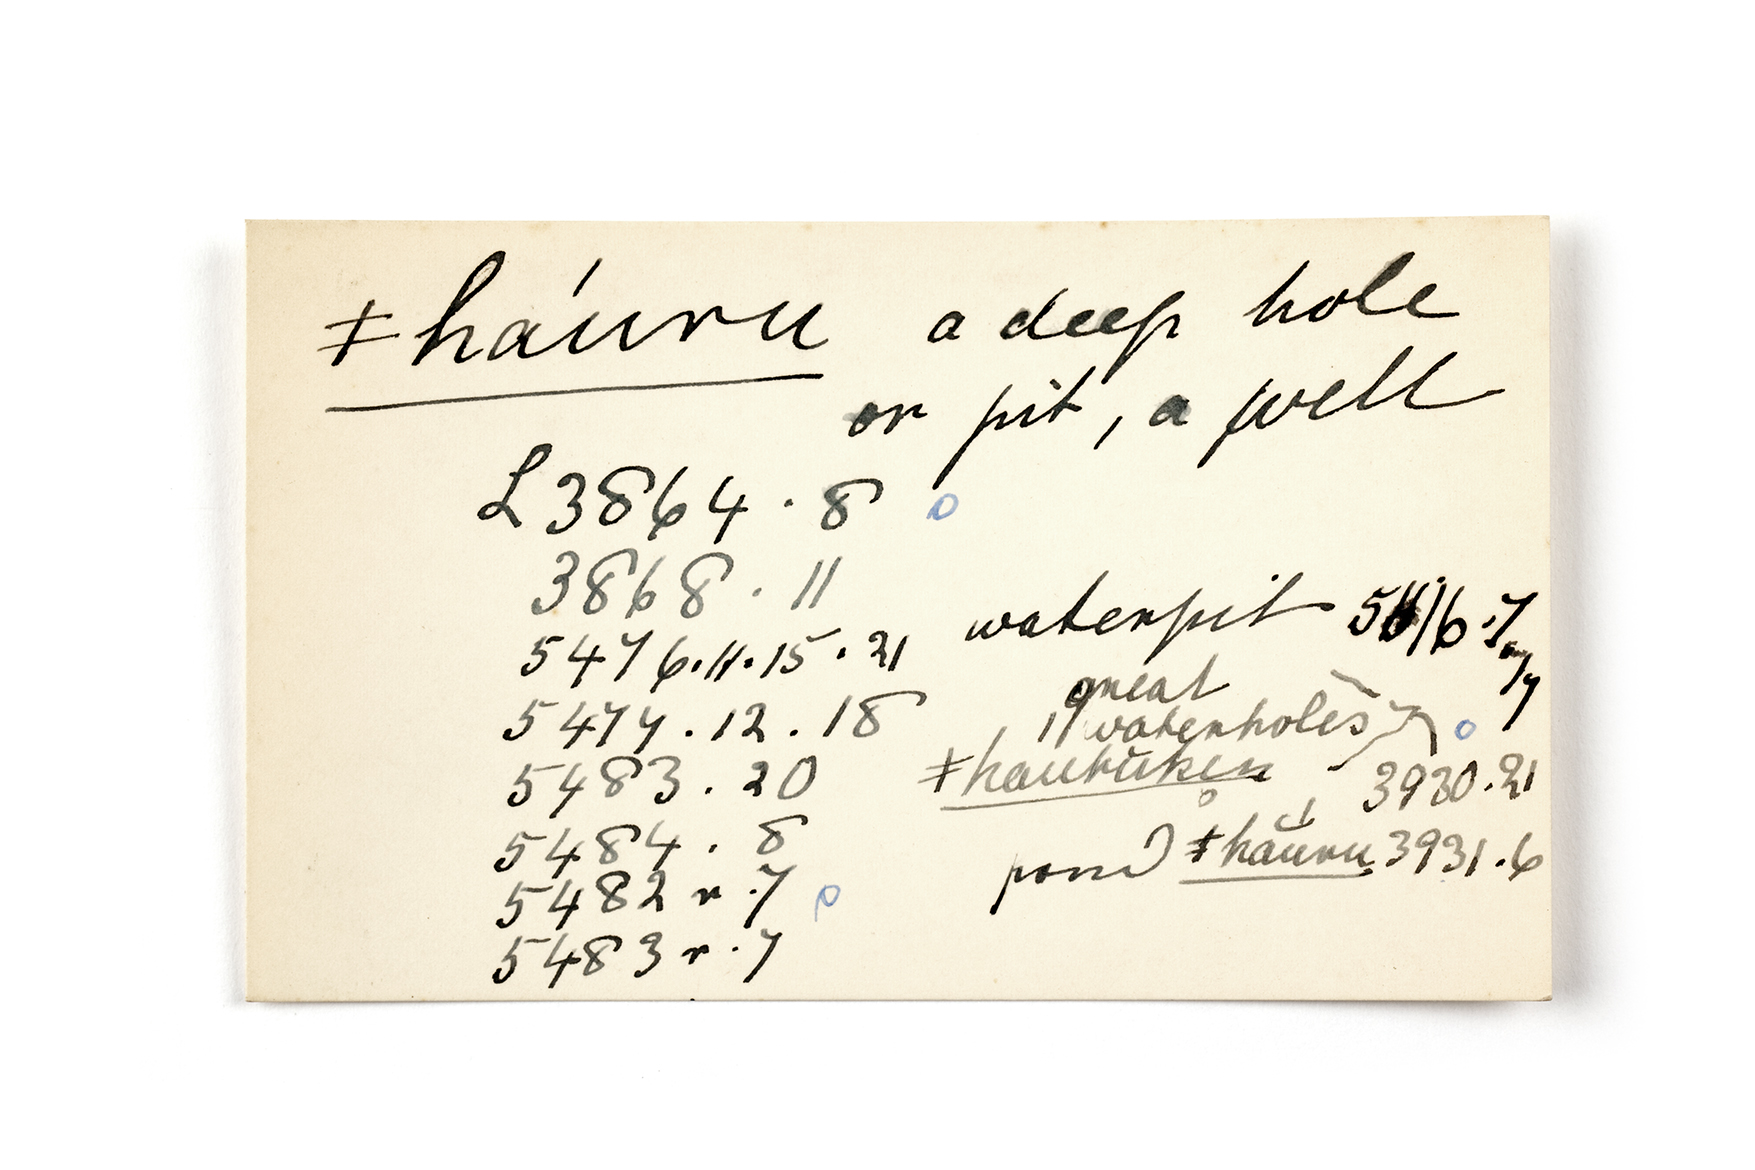 ǂháuru a deep hole
or pit, a well
L 3864 . 8
3868 . 11
5476 . 11 . 15 . 21
5477 . 12 . 18
5483 . 20
5484 . 8
5482 r . 7
5483 r . 7
waterpit
great
waterholes
ǂhauruken 3930 . 21
pond ǂhauru 3931 . 6